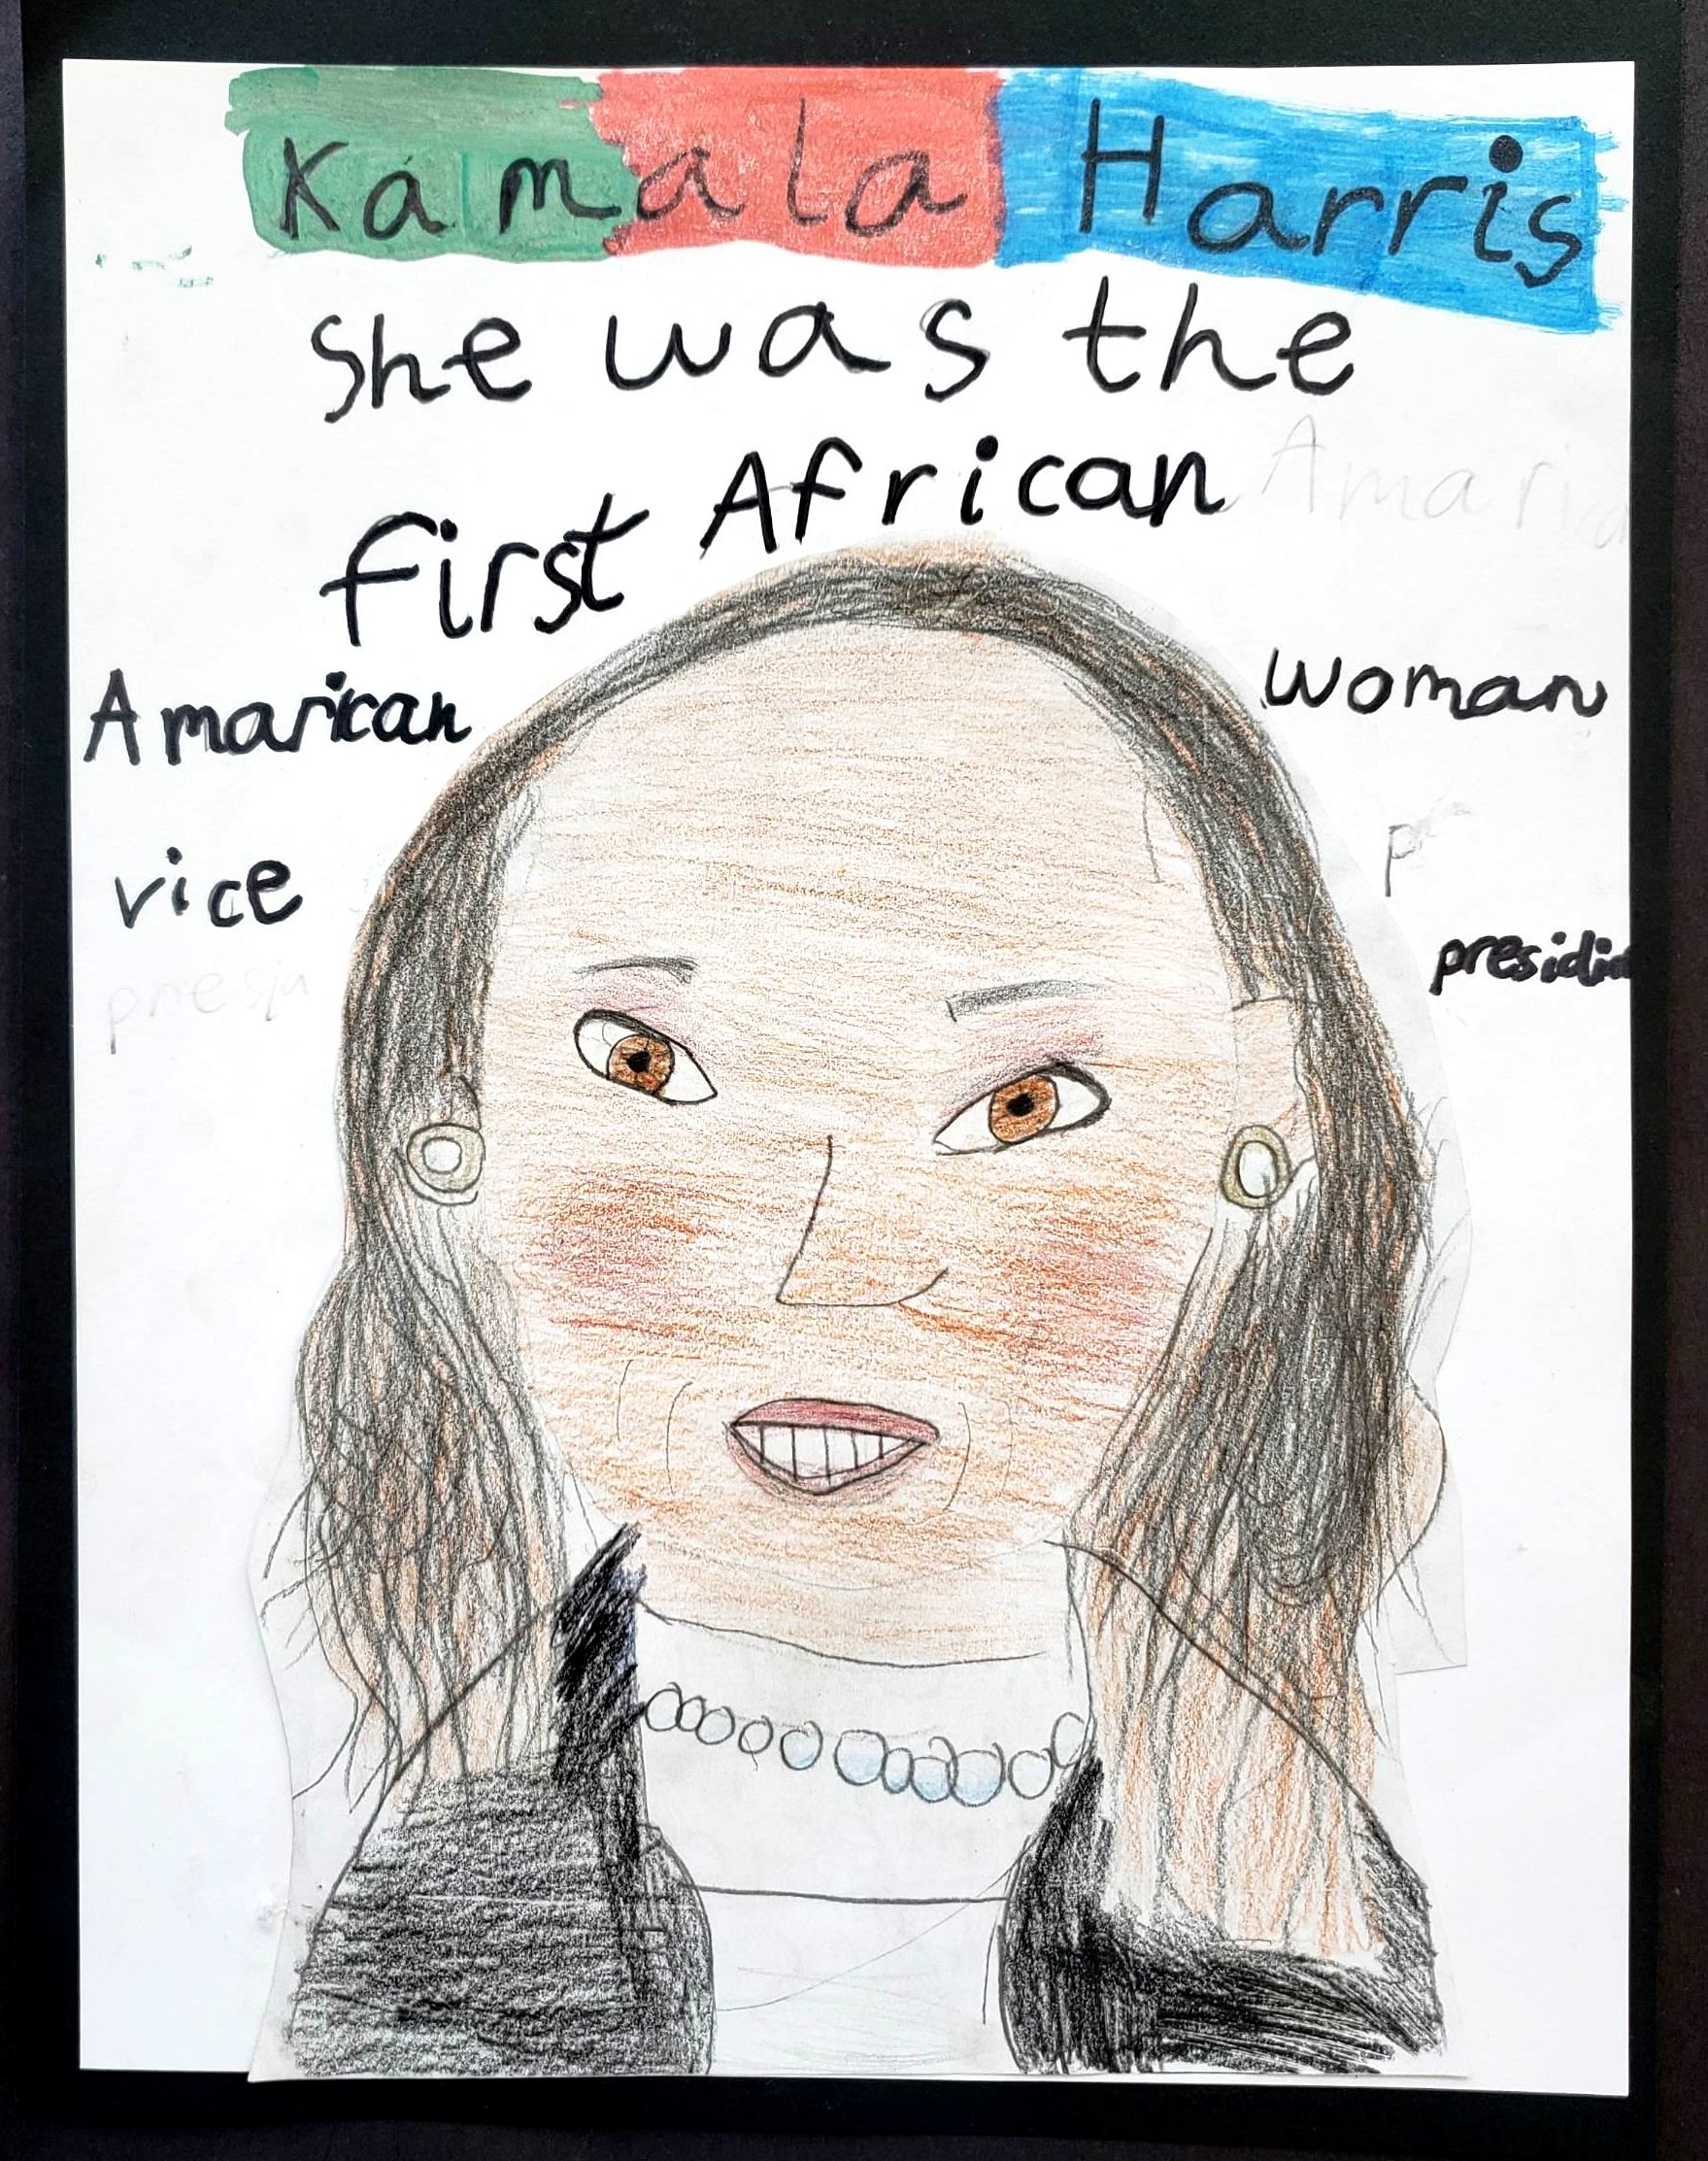 Kamala Harris
She was the
first African
Amarican woman
vice
presidin